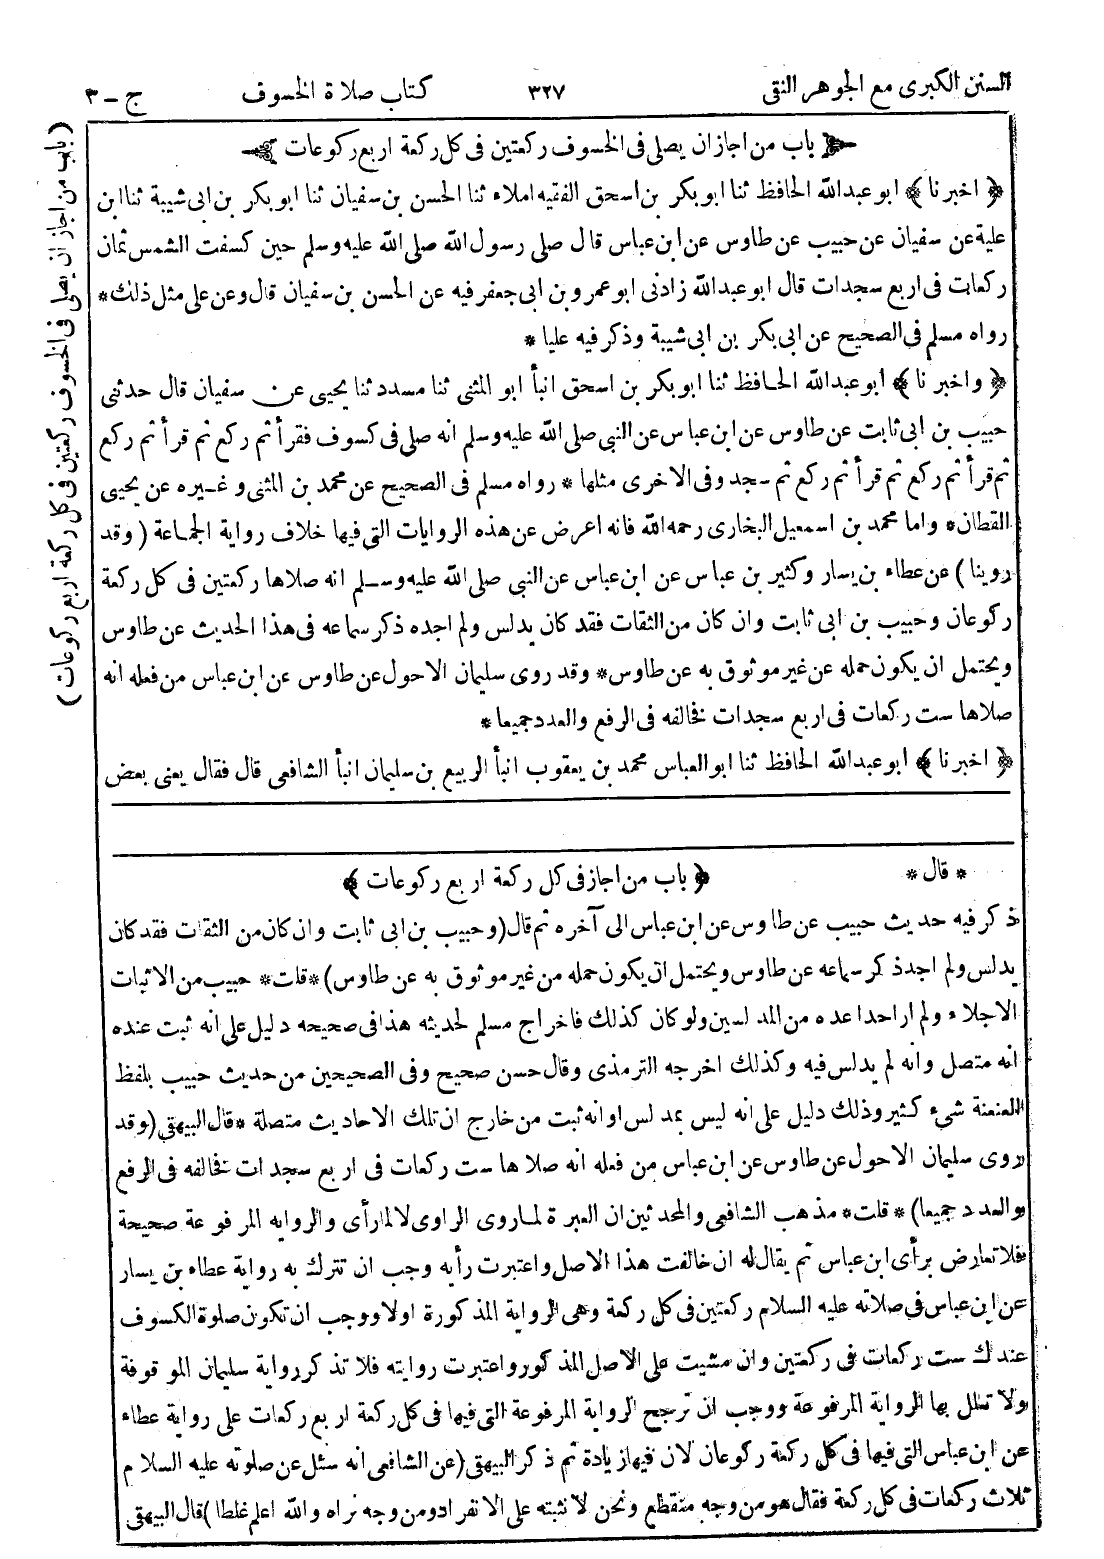 السنن الكبرى مع الجوهر النقى ٣٢٧ كتاب صلاة الخسوف ج - ٣
باب من اجاز ان يصلى فى الخسوف ركعتين فى كل ركعة اربع ركوعات
﴿ اخبرنا ﴾ ابو عبدالله الحافظ ثنا ابو بكر بن اسحق الفقيه املاء ثنا الحسن بن سفيان ثنا ابو بكر بن ابى شيبة ثنا ابن
علية عن سفيان عن حبيب عن طاوس عن ابن عباس قال صلى رسول الله صلى الله عليه وسلم حين كسفت الشمس ثمان
ركعات فى اربع سجدات قال ابو عبدالله زادنى ابو عمرو بن ابى جعفر فيه عن الحسن بن سفيان قال وعن على مثل ذلك*
رواه مسلم فى الصحيح عن ابى بكر بن ابى شيبة وذكر فيه عليا *
﴿ واخبر نا ﴾ ابو عبدالله الحافظ ثنا ابو بكر بن اسحق انبأ ابو المثنى ثنا مسدد ثنا يحيى عن سفيان قال حدثنى
حبيب بن ابى ثابت عن طاوس عن ابن عباس عن النبى صلى الله عليه وسلم انه صلى فى كسوف فقرأ ثم ركع ثم قرأ ثم ركع
ثم قرأ ثم ركع ثم قرأ ثم ركع ثم سجد وفى الاخرى مثلها * رواه مسلم فى الصحيح عن محمد بن المثنى وغيره عن يحيى
القطان* واما محمد بن اسمعيل البخارى رحمه الله فانه اعرض عن هذه الروايات التى فيها خلاف رواية الجماعة ( وقد
روينا ) عن عطاء بن يسار وكثير بن عباس عن ابن عباس عن النبى صلى الله عليه وسلم انه صلاها ركعتين فى كل ركعة
ركوعان وحبيب بن ابى ثابت وان كان من الثقات فقد كان يدلس ولم اجده ذكر سماعه فى هذا الحديث عن طاوس
ويحتمل ان يكون حمله عن غير موثوق به عن طاوس* وقد روى سليمان الاحول عن طاوس عن ابن عباس من فعله انه
صلاها ست ركعات فى اربع سجدات فخالفه فى الرفع والعدد جميعا *
﴿ اخبرنا ﴾ ابو عبدالله الحافظ ثنا ابو العباس محمد بن يعقوب انبأ الربيع بن سليمان انبأ الشافعى قال فقال يعنى بعض
* قال * ﴿ باب من اجاز فى كل ركعة اربع ركوعات ﴾
ذكر فيه حديث حبيب عن طاوس عن ابن عباس الى آخره ثم قال (وحبيب بن ابى ثابت وان كان من الثقات فقد كان
يدلس ولم اجد ذكر سماعه عن طاوس ويحتمل ان يكون حمله من غير موثوق به عن طاوس) *قلت* حبيب من الاثبات
الاجلاء ولم ار احدا عده من المدلسين ولو كان كذلك فاخراج مسلم لحديثه هذا فى صحيحه دليل على انه ثبت عنده
انه متصل وانه لم يدلس فيه وكذلك اخرجه الترمذى وقال حسن صحيح وفى الصحيحين من حديث حبيب بلفظ
العنعنة شىء كثير وذلك دليل على انه ليس بمدلس او انه ثبت من خارج ان تلك الاحاديث متصلة *قال البيهقى (وقد
روى سليمان الاحول عن طاوس عن ابن عباس من فعله انه صلاها ست ركعات فى اربع سجدات فخالفه فى الرفع
والعدد جميعا) *قلت* مذهب الشافعى والمحدثين ان العبرة لما روى الراوى لا لما رأى والروايه المرفوعة صحيحة
فلا تعارض برأى ابن عباس ثم يقال له ان خالفت هذا الاصل واعتبرت رأيه وجب ان تترك به رواية عطاء بن يسار
عن ابن عباس فى صلاته عليه السلام ركعتين فى كل ركعة وهى الرواية المذكورة اولا ووجب ان تكون صلوة الكسوف
عندك ست ركعات فى ركعتين وان مشيت على الاصل المذكور واعتبرت روايته فلا تذكر رواية سليمان الموقوفة
ولا تعلل بها الرواية المرفوعة ووجب ان ترجح الرواية المرفوعة التى فيها فى كل ركعة اربع ركعات على رواية عطاء
عن ابن عباس التى فيها فى كل ركعة ركوعان لان فيها زيادة ثم ذكر البيهقى (عن الشافعى انه سئل عن صلوته عليه السلام
ثلاث ركعات فى كل ركعة فقال هو من وجه منقطع ونحن لا نثبته على الانفراد ومن وجه نراه والله اعلم غلطا) قال البيهقى
(باب من اجاز ان يصلى فى الخسوف ركعتين فى كل ركعة اربع ركوعات)